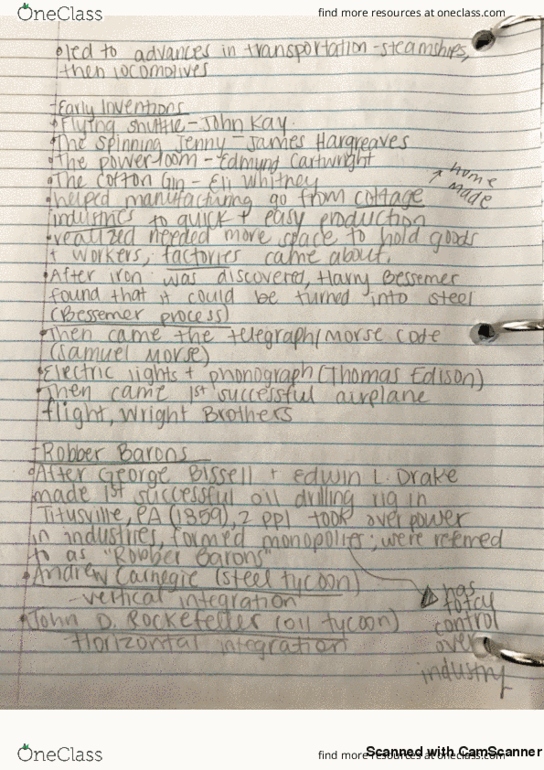 OneClass
find more resources at oneclass.com
•led to advances in transportation-steamships,
then locomotives
-Early Inventions
•Flying shuttle-John Kay.
•The Spinning Jenny-James Hargreaves
•The powerloom-Edmund Cartwright
•The Cotton Gin- Eli Whitney
home
made
•helped manufacturing go from cottage
industries to quick + easy production
•realized needed more space to hold goods
+ workers, factories came about.
•After iron was discovered, Harry Bessemer
found that it could be turned into steel
(Bessemer process)
•Then came the telegraph/Morse code
(Samuel Morse)
•Electric lights + phonograph (Thomas Edison)
•Then came 1st successful airplane
flight, Wright Brothers
-Robber Barons
•After George Bissell + Edwin L. Drake
made 1st successful oil drilling rig in
Titusville, PA (1859), 2 ppl took over power
in industries, formed monopolies; were referred
to as "Robber Barons"
•Andrew Carnegie (steel tycoon)
-vertical integration
•John D. Rockefeller (oil tycoon)
-Horizontal integration
has
control
over
industry
OneClass
find more resources at oneclass.com
Scanned with CamScanner